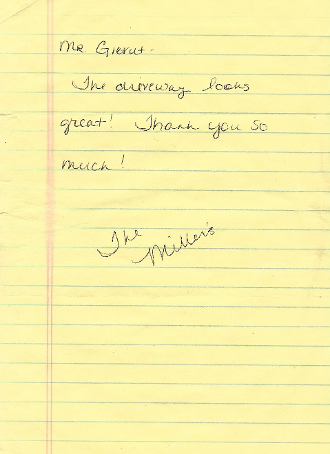 Mr.
The driveway looks
great! Thank you so
much!
The
Miller's